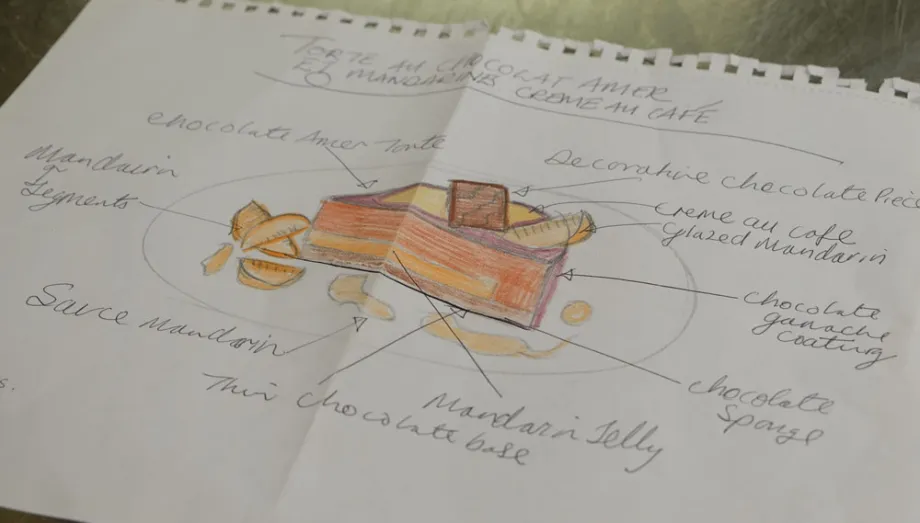 TORTE AU CHOCOLAT AMER
ET MANDARINES CREME AU CAFE
Chocolate Amer Torte
Mandairin
Segments
Decorative chocolate Piece
Creme au cafe
glazed Mandarin
chocolate
ganache
coating
Sauce Mandarin
Thin chocolate base
Mandarin Jelly
chocolate
Sponge
s.